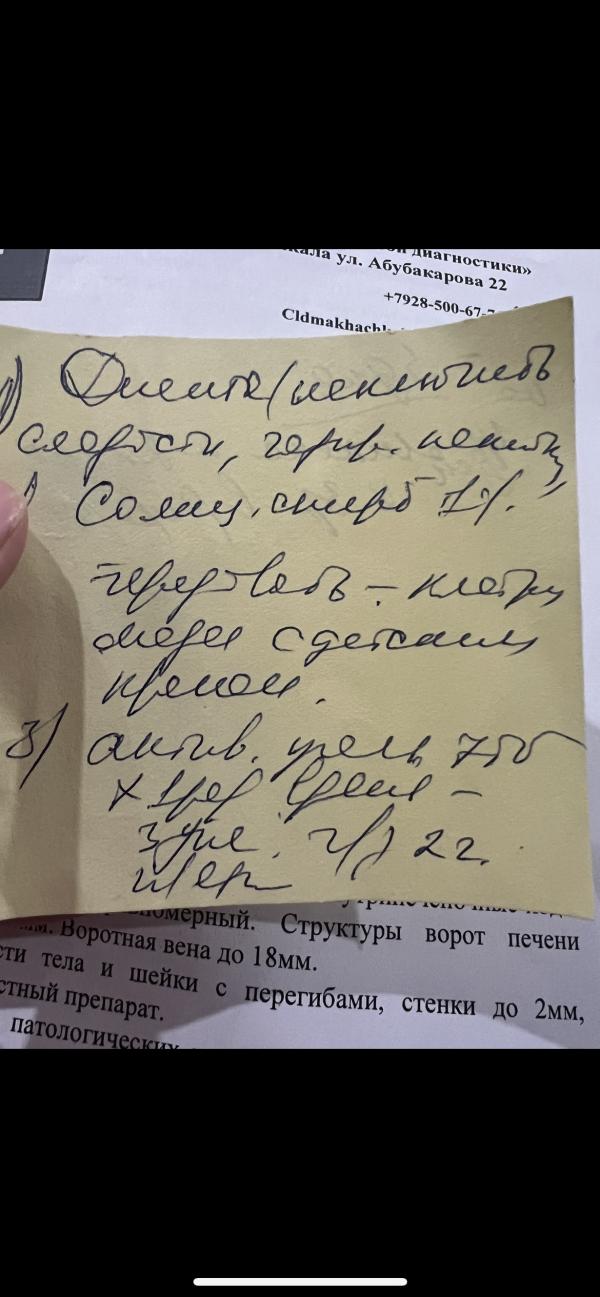 диагностики»
ул. Абубакарова 22
+7928-500-67-7
Cldmakhachk
1) Диета (исключить
сладости,
Салиц. спирт 1%.
чередовать -
с детским
кремом.
3) актив. уголь 7 т
х 1 раз в день -
3 дня. ч/з 2 г.
Структуры ворот печени
мм. Воротная вена до 18мм.
сти тела и шейки с перегибами, стенки до 2мм,
стный препарат.
патологических